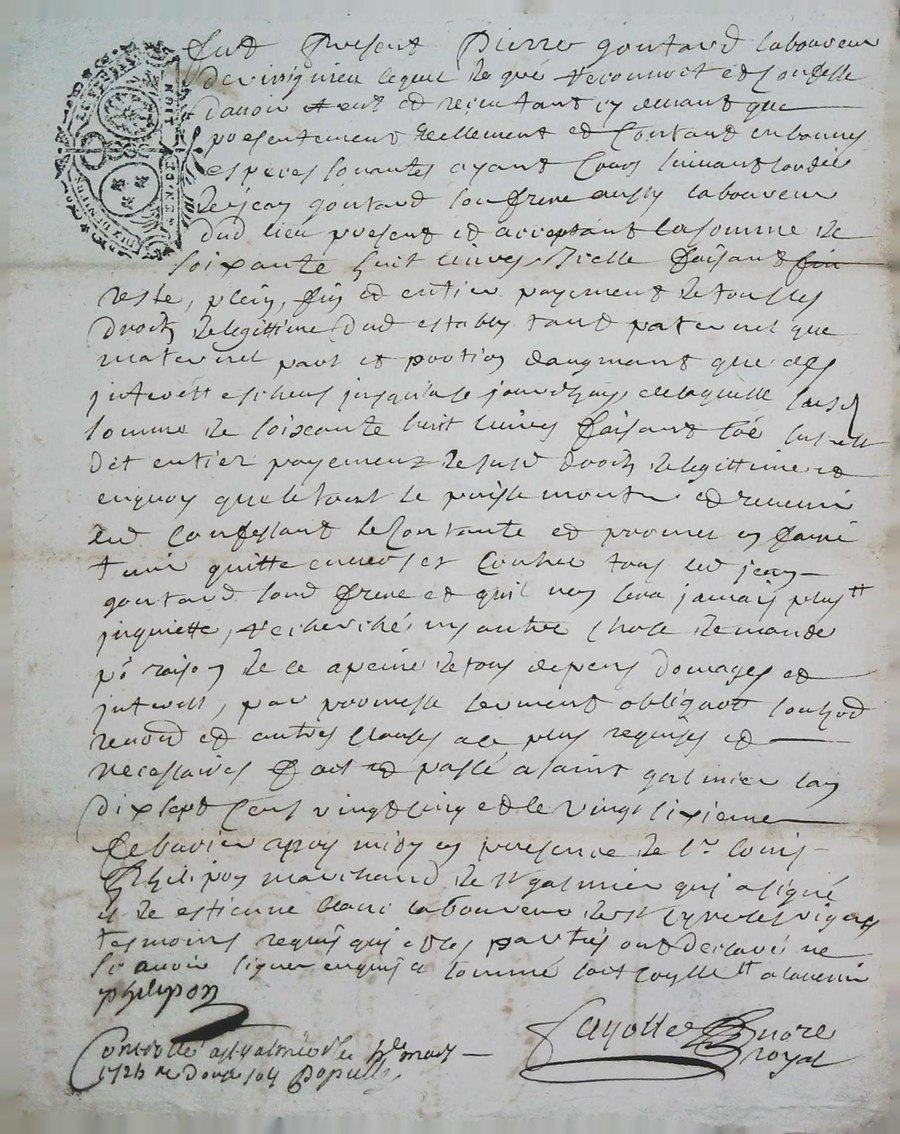 Fut Present Pierre goutard laboureur
de virigneu lequel de gré reconnoit et Confesse
d'avoir eut et receu tant cy devant que
presentement reellement et Contant en bonnes
especes sonantes ayant Cours suivant l'ordit
de jean goutard son frere aussy laboureur
dud lieu present et acceptant la somme de
soixante huit livres Icelle faisant
reste, plein, fin et entier payement de tous les
droitz de legittime dud estably tant paternel que
maternel part et portion daugmant que des
interest escheus jusqua ce jourdhuy de laquelle
somme de soixante huit livres faisant
dit entier payement de susd droitz de legittime et
en quoy que le tout se puisse monter et revenir
led Confessant se Contante et promet en faire
tenir quitte envers et Contre tous led jean
goutard sond frere et quil nen sera jamais plus
inquiette, recherché ny autre Chose demandé
pr raison de ce a peine de tous depens domages et
interest, par promesse serment obligaon
renond et autres Clauses a ce plus requises et
necessaires fait et passé a saint galmier lan
dix sept Cent vingt cinq et le vingt sixieme
febvrier apres midy en presence de sr louis
Philipon marchand de st galmier qui a signé
et de estienne blanc laboureur de st Cyr les vignes
tesmoins requis qui et les parties ont declaré ne
scavoir signer enquis et sommé soit a lavenir
philipon
Fayolle Nore
royal
Controllé a st galmier le mars
1725 R douze sols